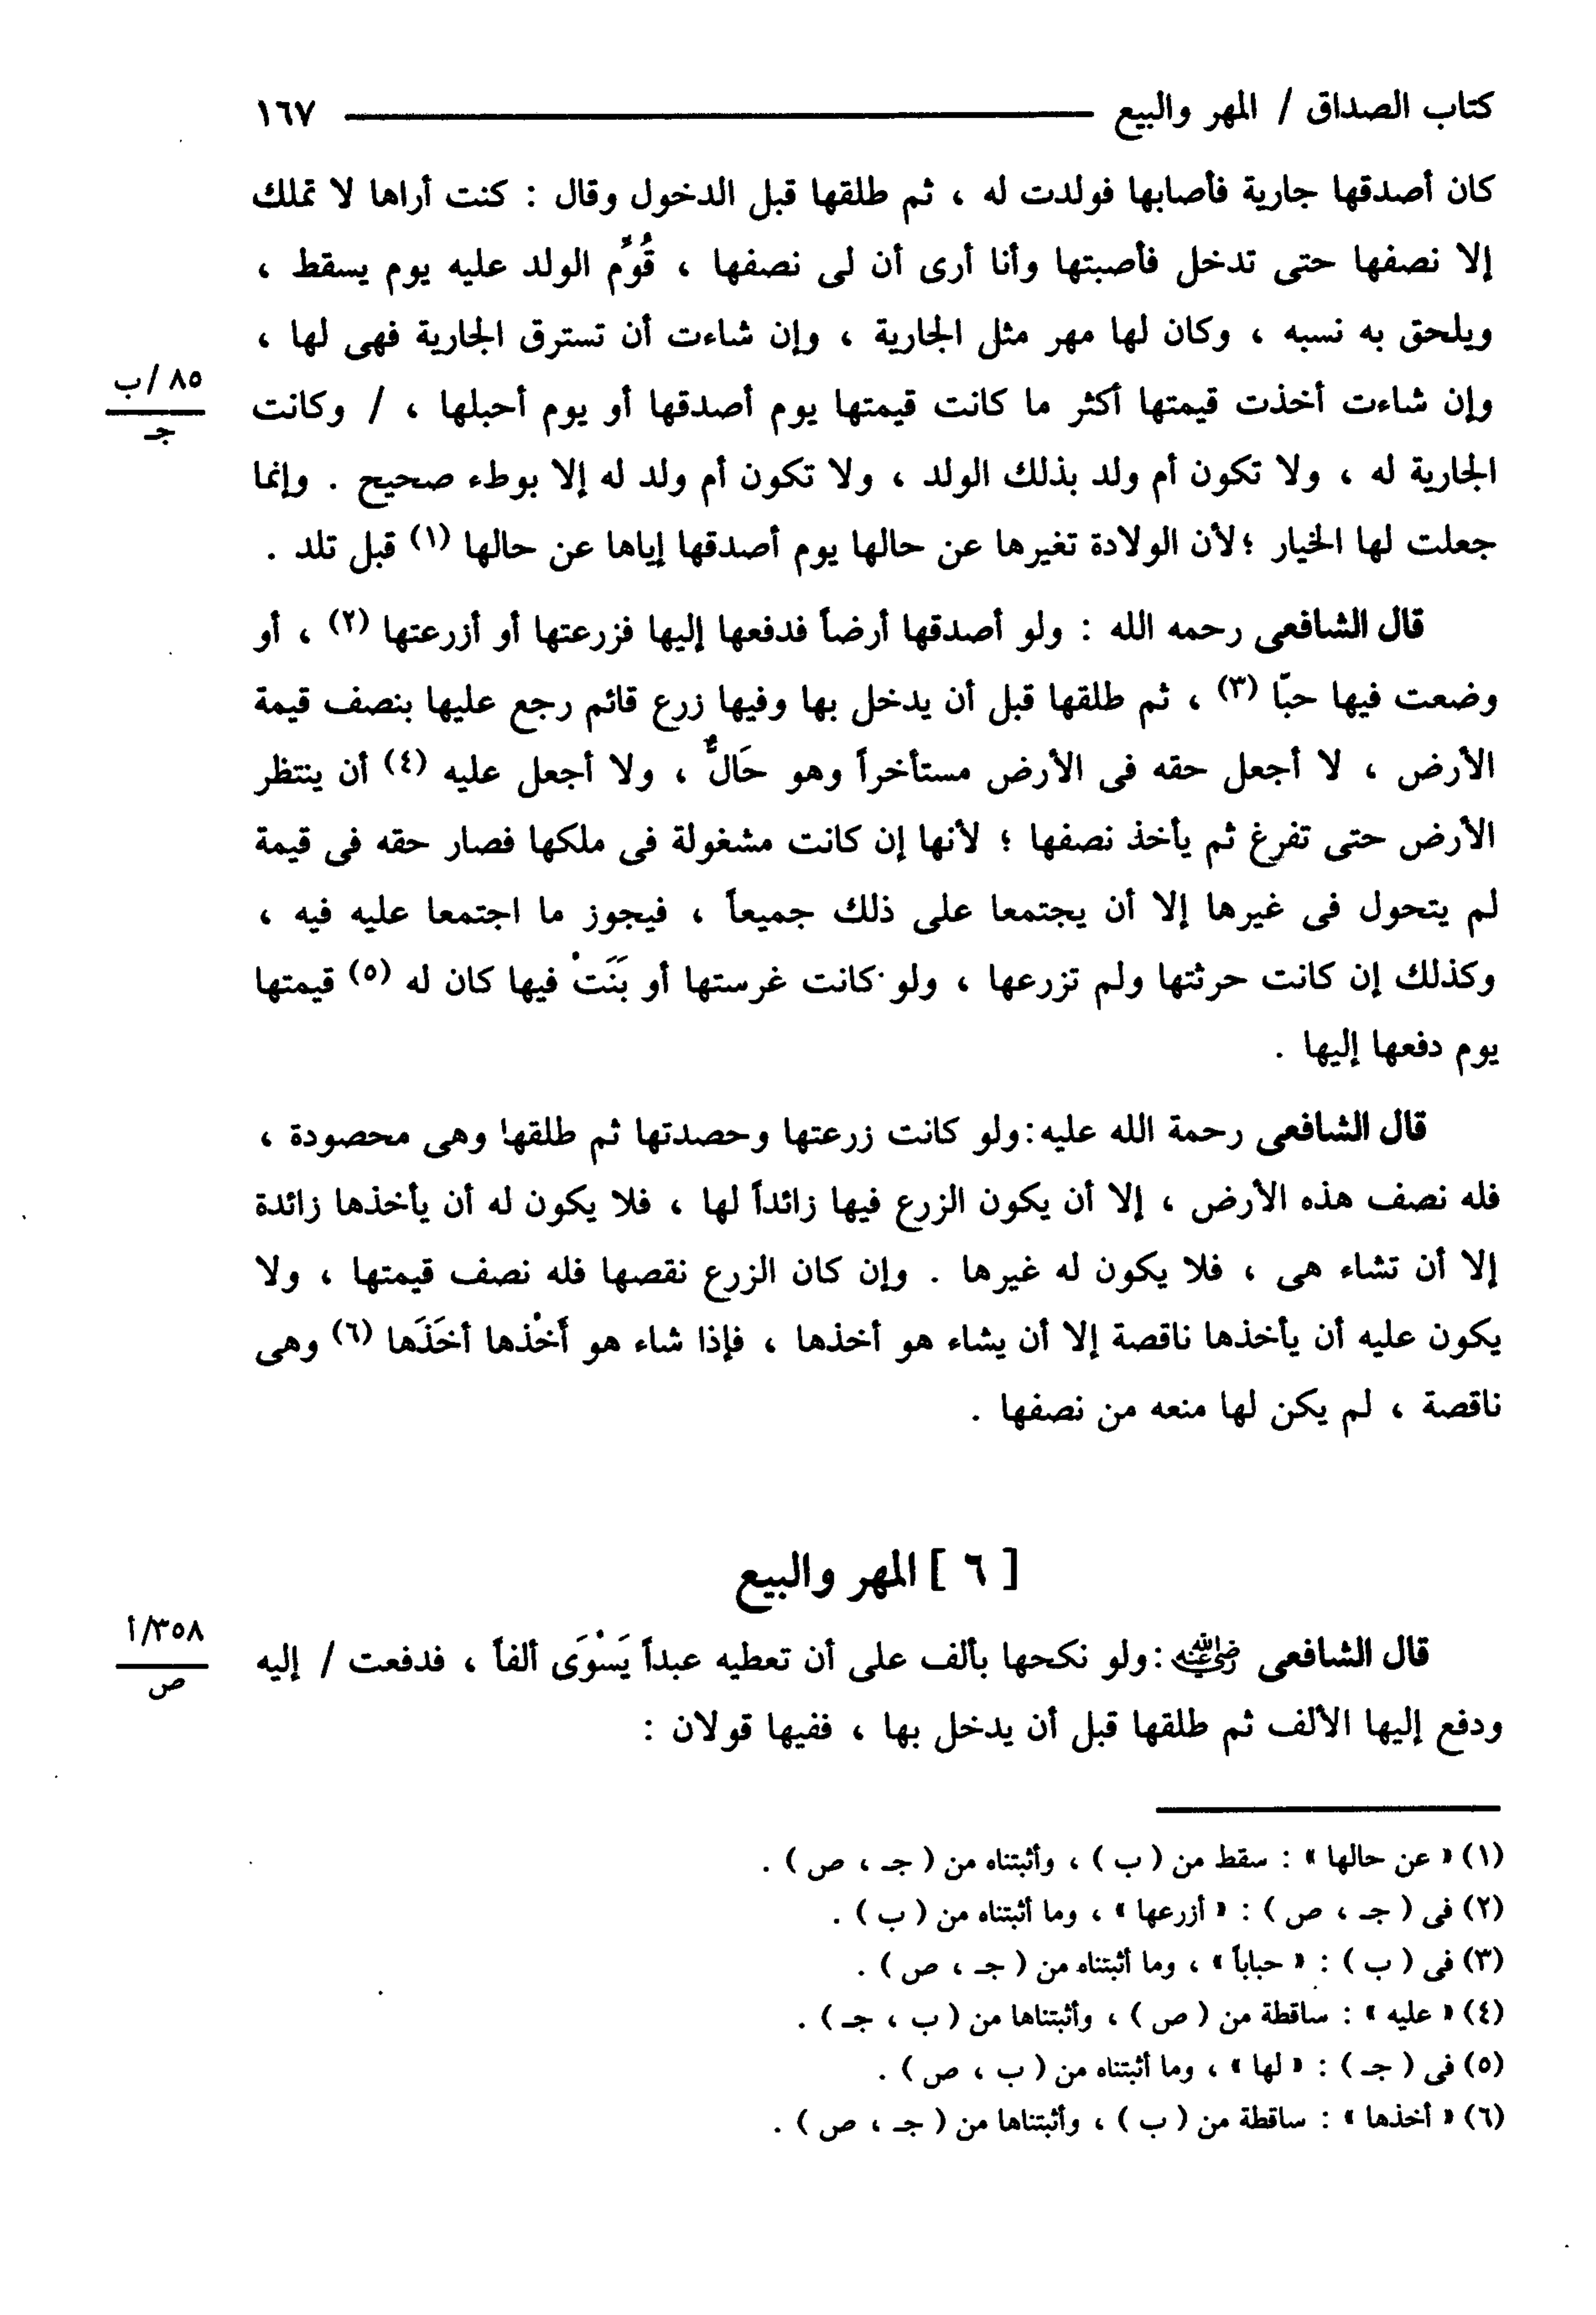 كتاب الصداق / المهر والبيع ١٦٧
كان أصدقها جارية فأصابها فولدت له ، ثم طلقها قبل الدخول وقال : كنت أراها لا تملك
إلا نصفها حتى تدخل فأصبتها وأنا أرى أن لى نصفها ، قُوِّم الولد عليه يوم يسقط ،
ويلحق به نسبه ، وكان لها مهر مثل الجارية ، وإن شاءت أن تسترق الجارية فهى لها ،
وإن شاءت أخذت قيمتها أكثر ما كانت قيمتها يوم أصدقها أو يوم أحبلها ، / وكانت
٨٥/ب
جـ
الجارية له ، ولا تكون أم ولد بذلك الولد ، ولا تكون أم ولد له إلا بوطء صحيح . وإنما
جعلت لها الخيار ؛ لأن الولادة تغيرها عن حالها يوم أصدقها إياها عن حالها (١) قبل تلد .
قال الشافعى رحمه الله : ولو أصدقها أرضاً فدفعها إليها فزرعتها أو أزرعتها (٢) ، أو
وضعت فيها حبّا (٣) ، ثم طلقها قبل أن يدخل بها وفيها زرع قائم رجع عليها بنصف قيمة
الأرض ، لا أجعل حقه فى الأرض مستأخراً وهو حَالٌّ ، ولا أجعل عليه (٤) أن ينتظر
الأرض حتى تفرغ ثم يأخذ نصفها ؛ لأنها إن كانت مشغولة فى ملكها فصار حقه فى قيمة
لم يتحول فى غيرها إلا أن يجتمعا على ذلك جميعاً ، فيجوز ما اجتمعا عليه فيه ،
وكذلك إن كانت حرثتها ولم تزرعها ، ولو كانت غرستها أو بَنَتْ فيها كان له (٥) قيمتها
يوم دفعها إليها .
قال الشافعى رحمة الله عليه : ولو كانت زرعتها وحصدتها ثم طلقها وهى محصودة ،
فله نصف هذه الأرض ، إلا أن يكون الزرع فيها زائداً لها ، فلا يكون له أن يأخذها زائدة
إلا أن تشاء هى ، فلا يكون له غيرها . وإن كان الزرع نقصها فله نصف قيمتها ، ولا
يكون عليه أن يأخذها ناقصة إلا أن يشاء هو أخذها ، فإذا شاء هو أَخْذها أخَذَها (٦) وهى
ناقصة ، لم يكن لها منعه من نصفها .
[ ٦ ] المهر والبيع
قال الشافعى رضي الله عنه : ولو نكحها بألف على أن تعطيه عبداً يَسْوَى ألفاً ، فدفعت / إليه
٣٥٨/أ
ص
ودفع إليها الألف ثم طلقها قبل أن يدخل بها ، ففيها قولان :
(١) « عن حالها » : سقط من ( ب ) ، وأثبتناه من ( جـ ، ص ) .
(٢) فى ( جـ ، ص ) : « أزرعها » ، وما أثبتناه من ( ب ) .
(٣) فى ( ب ) : « حباباً » ، وما أثبتناه من ( جـ ، ص ) .
(٤) « عليه » : ساقطة من ( ص ) ، وأثبتناها من ( ب ، جـ ) .
(٥) فى ( جـ ) : « لها » ، وما أثبتناه من ( ب ، ص ) .
(٦) « أخذها » : ساقطة من ( ب ) ، وأثبتناها من ( جـ ، ص ) .